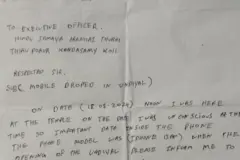 TO EXECUTIVE OFFICER.
HINDU SAMAYA ARANILAI THURAI
THIRUPORUR KANDASAMY KOIL
RESPECTED SIR,
SUB: MOBILE DROPED IN UNDIYAL)
ON DATE (18.08.2024) NOW I WAS HERE
AT THE TEMPLE ON THE I WAS UNCONSCIOUS AT THE
TIME SO IMPORTANT DATA INSIDE THE PHONE
THE PHONE MODEL WAS (IPHONE) WHEN THE
OPENING OF THE UNDIYAL PLEASE INFORM ME TO